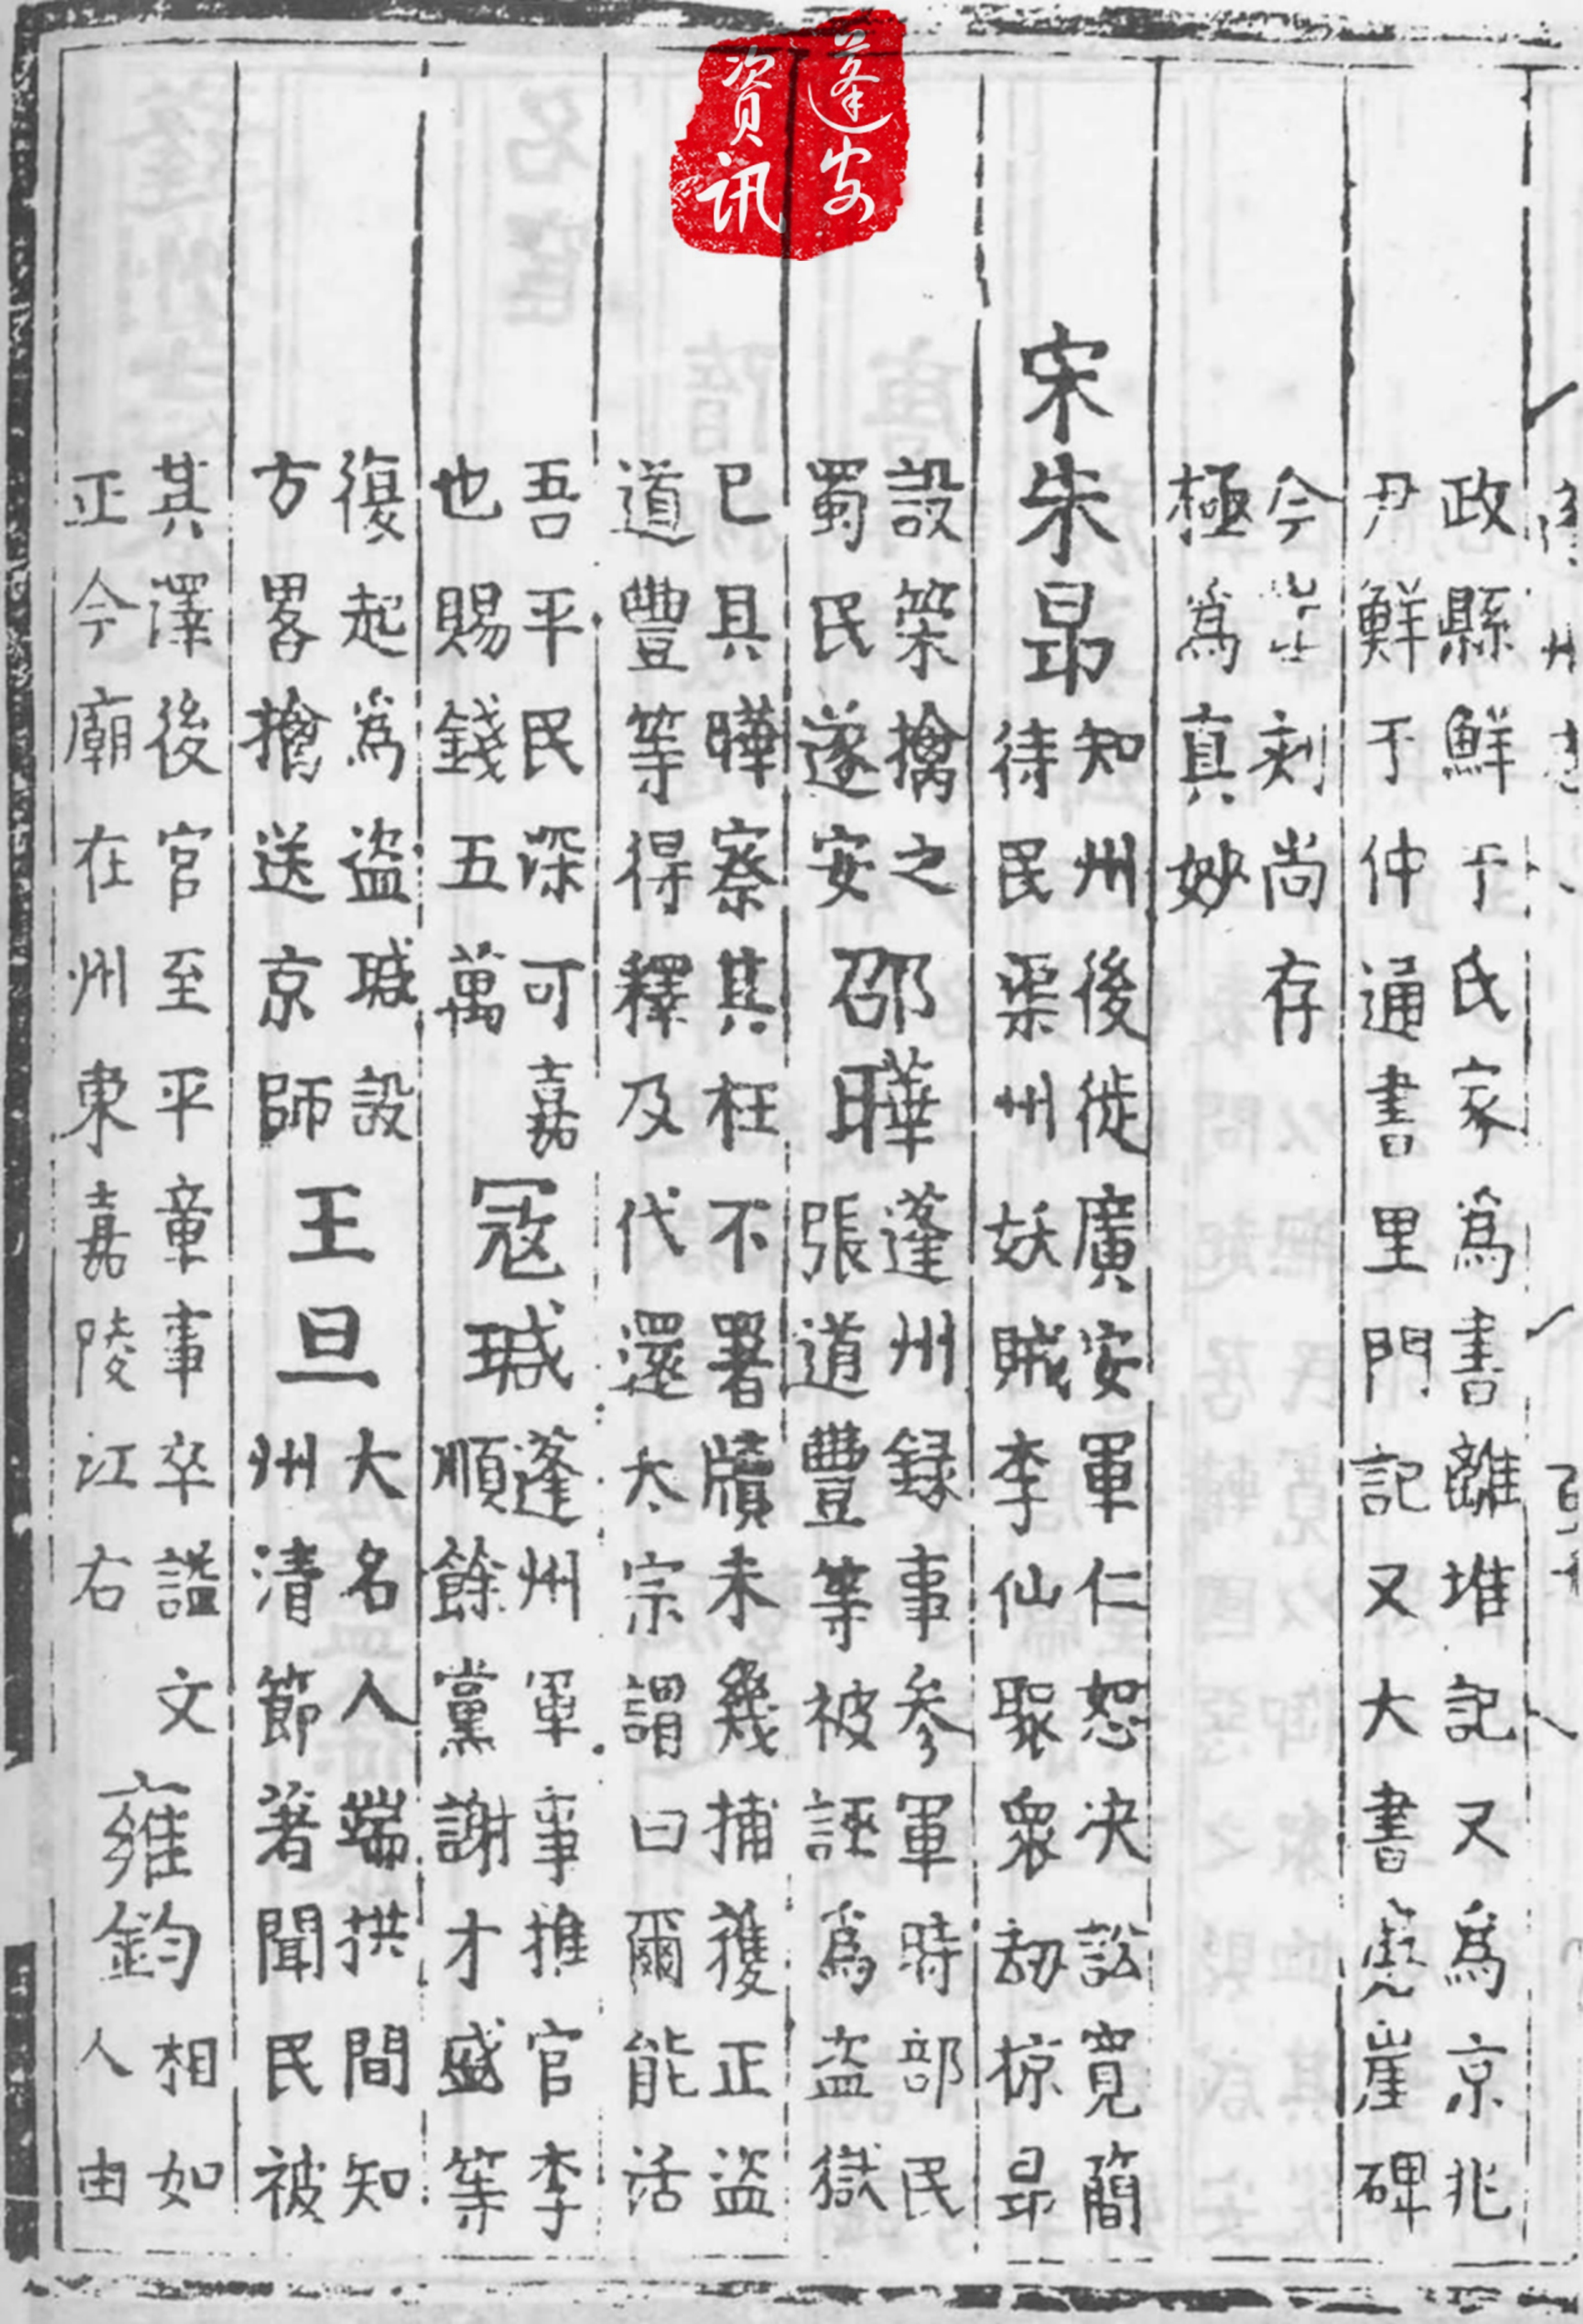 蓬安
资讯
政縣鮮于氏家爲書離堆記又爲京兆
尹鮮于仲通書里門記又大書磨崖碑
今崖刻尚存
極爲真妙
宋朱昂
知州後徙廣安軍仁恕决訟寬簡
待民渠州妖賊李仙聚衆刼掠昂
設策擒之
蜀民遂安
邵曄
蓬州録事參軍時部民
張道豐等被誣爲盗獄
已具曄察其枉不署牘未幾捕獲正盗
道豐等得釋及代還太宗謂曰爾能活
吾平民深可嘉
也賜錢五萬
寇瑊
蓬州軍事推官李
順餘黨謝才盛等
復起爲盗瑊設
方畧擒送京師
王旦
大名人端拱間知
州清節著聞民被
其澤後官至平章事卒諡文
正今廟在州東嘉陵江右
雍鈞
相如
人由